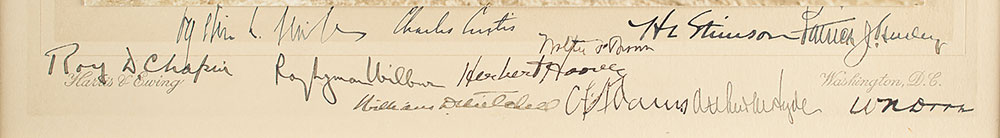 Ogden L. Mills Charles Curtis H L Stimson Patrick J. Hurley
Walter F. Brown
Roy D Chapin Ray Lyman Wilbur Herbert Hoover
Harris & Ewing Washington, D.C.
William D. Mitchell C F Adams Arthur M Hyde W N Doak